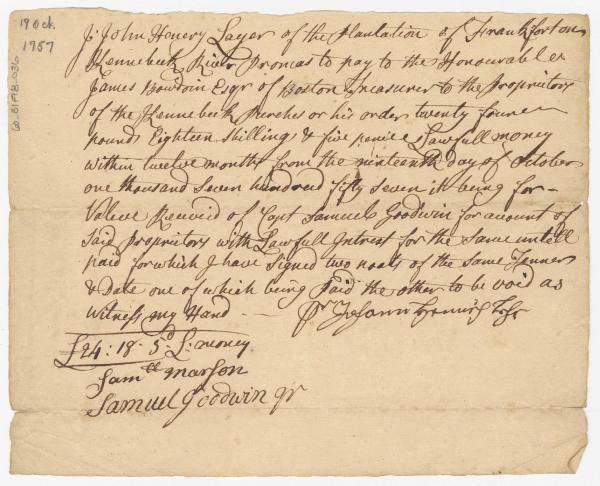 19 Oct.
1757
60-BIAB-036
J: John Henery Layer of the Plantation of Frankfort on
Kennebeck River Promeas to pay to the Honourable
James Bowdoin Esqr of Boston Treasurer to the Proprietors
of the Kennebeck Purches or his order twenty four
pounds Eighteen shilling & five penice Lawfull money
within twelve months from the nineteenth day of October
one thousand Seven hundred fifty Seven it being for
Valeue Received of Capt Samuel Goodwin for account of
Said Proprietors with Lawfull Intrest for the Same untill
paid for which J have Signed two noats of the Same Tenner
& Date one of which being Paid the other to be void as
Witness my Hand
£24: 18: 5d L: money
Samll Marson
Samuel Goodwin Jr